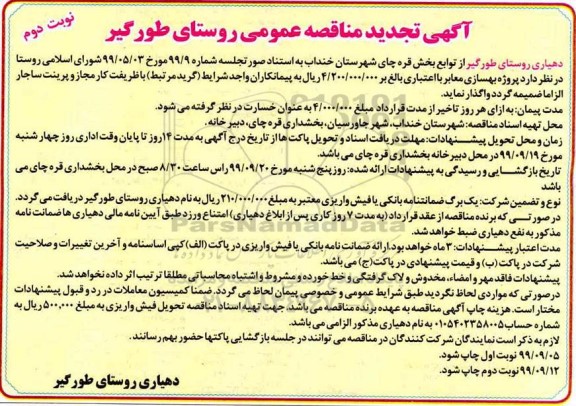 آگهی تجدید مناقصه عمومی روستای طورگیر
نوبت دوم
دهیاری روستای طورگیر از توابع بخش قره چای شهرستان خنداب به استناد صورتجلسه شماره ۹۹/۹ مورخ ۹۹/۰۵/۰۳ شورای اسلامی روستا
در نظر دارد پروژه بهسازی معابر با اعتباری بالغ بر ۴/۲۰۰/۰۰۰/۰۰۰ ریال به پیمانکاران واجد شرایط (گرید مرتبط) با ظرفیت کار مجاز و پرینت ساجار
الزاما ضمیمه گردد واگذار نماید.
مدت پیمان: به ازای هر روز تاخیر از مدت قرارداد مبلغ ۴/۰۰۰/۰۰۰ به عنوان خسارت در نظر گرفته می شود.
محل تهیه اسناد مناقصه: شهرستان خنداب، شهر جاورسیان، بخشداری قره چای، دبیر خانه.
زمان و محل تحویل پیشنهادات: مهلت دریافت اسناد و تحویل پاکت ها از تاریخ درج آگهی به مدت ۱۴ روز تا پایان وقت اداری روز چهار شنبه
مورخ ۹۹/۰۹/۱۹ در محل دبیر خانه بخشداری قره چای می باشد.
تاریخ بازگشایی و رسیدگی به پیشنهادات ارائه شده: روز پنج شنبه مورخ ۹۹/۰۹/۲۰ راس ساعت ۸/۳۰ صبح در محل بخشداری قره چای می
باشد
نوع و تضمین شرکت: یک برگ ضمانتنامه بانکی یا فیش واریزی معتبر به مبلغ ۲۱۰/۰۰۰/۰۰۰ ریال به نام دهیاری روستای طورگیر دریافت می گردد.
در صورتی که برنده مناقصه از عقد قرارداد (به مدت ۷ روز کاری پس از ابلاغ دهیاری) امتناع ورزد طبق آیین نامه مالی دهیاری ها ضمانت نامه
مذکور به نفع دهیاری ضبط خواهد شد.
مدت اعتبار پیشنهادات: ۳ ماه خواهد بود. ارائه ضمانت نامه بانکی یا فیش واریزی در پاکت (الف) کپی اساسنامه و آخرین تغییرات و صلاحیت
شرکت در پاکت (ب) و قیمت پیشنهادی در پاکت (ج) می باشد.
پیشنهادات فاقد مهر و امضاء، مخدوش و لاک گرفتگی و خط خورده و مشروط و اشتباه محاسباتی مطلقا ترتیب اثر داده نخواهد شد.
در صورتی که مواردی لحاظ نگردید طبق شرایط عمومی و خصوصی پیمان لحاظ می گردد. ضمنا کمیسیون معاملات در رد و قبول پیشنهادات
مختار است. هزینه چاپ آگهی مناقصه به عهده برنده مناقصه می باشد. جهت تهیه اسناد مناقصه تحویل فیش واریزی به مبلغ ۵۰۰,۰۰۰ ریال به
شماره حساب ۰۱۰۵۴۰۲۳۵۸۰۰۵ به نام دهیاری مذکور الزامی می باشد.
لازم به ذکر است نمایندگان شرکت کنندگان در مناقصه می توانند در جلسه بازگشایی پاکتها حضور بهم رسانند.
۹۹/۰۹/۰۵ نوبت اول چاپ شود.
۹۹/۰۹/۱۲ نوبت دوم چاپ شود.
دهیاری روستای طورگیر
ParsNamadData